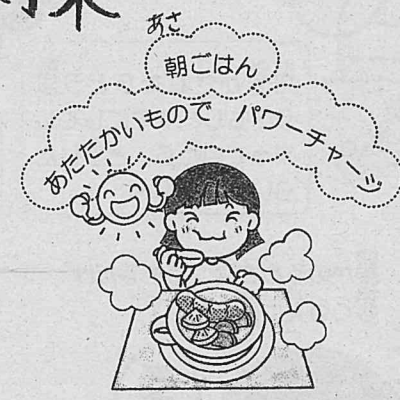 あさ
朝ごはん
あたたかいもので パワーチャージ